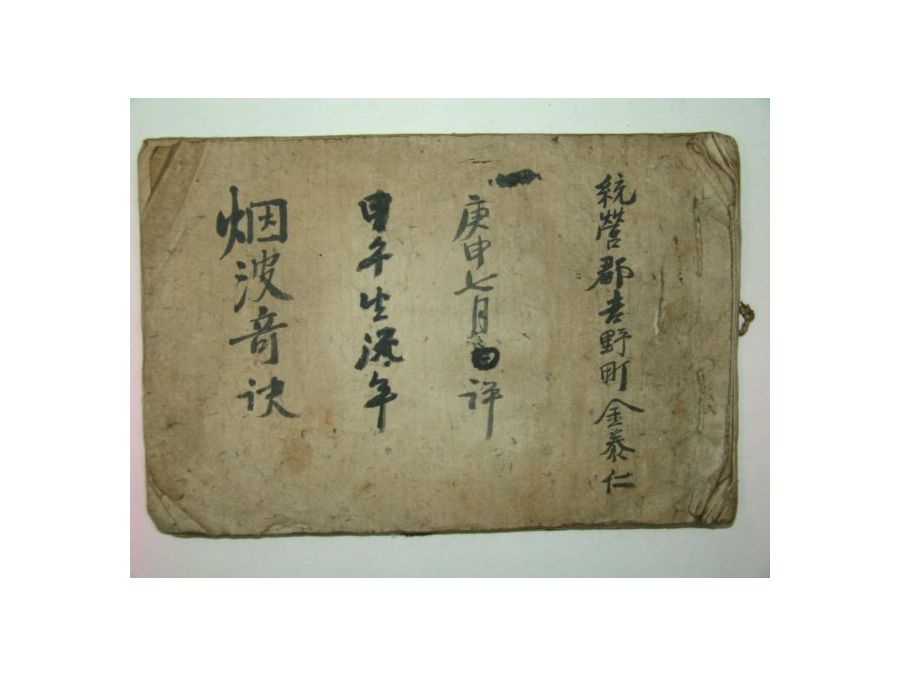 統營郡吉野町 金泰仁
庚申七月日評
甲午生流年
烟波奇訣